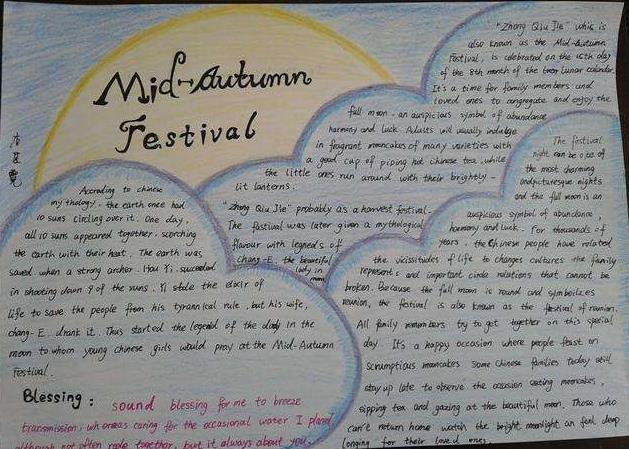 Mid-Autumn
Festival
"Zhong Qiu Jie" whic is
also known as the Mid-Autumn
Festival, is celebrated on the 15th day
of the 8th month of the lunar calendar.
It's a time for family members and
loved ones to congregate and enjoy the
full moon - an auspicious symbol of abundance
harmony and luck. Adults will usually indulge
in fragrant mooncakes of many varieties with
a good cup of piping hot chinese tea, while
the little ones run around with their brightly-
lit lanterns.
"Zhong Qiu Jie" probably as a harvest festival.
The festival was later given a mythological
flavour with legneds of
Chang-E, the beautiful
lady in
moon
According to chinese
mythology, the earth once had
10 suns circling over it. One day,
all 10 suns appeared together, scorching
the earth with their heat. The earth was
saved when a strong archer, Hou Yi, succeeded
in shooting down 9 of the suns. Yi stole the elixir of
life to save the people from his tyrannical rule, but his wife,
chang-E drank it. Thus started the legend of the lady in the
moon to whom young chinese girls would pray at the Mid-Autumn
Festival.
The festival
night can be one of
the most charming
and picturesque nights
and the full moon is an
auspicious symbol of abundance,
harmony and luck. For thousands of
years, the Chinese people have related
the vicissitudes of life to changes cultures the family
represents and important circle relations that cannot be
broken. Because the full moon is round and symbolizes
reunion, the festival is also known as the festival of reunion.
All family members try to get together on this special
day. It's a happy occasion where people feast on
scrumptious mooncakes some Chinese families today still
stay up late to observe the occasion eating mooncakes,
sipping tea and gazing at the beautiful moon. Those who
can't return home watch the bright moonlight an feel deep
longing for their loved ones.
Blessing: sound blessing for me to breeze
transmission, whereas caring for the occasional water I
although not often together, but it always about you.